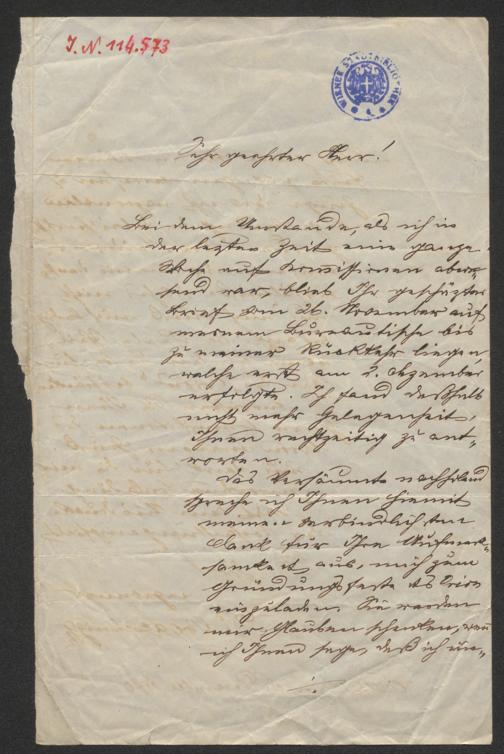 J. N. 114.573
WIENER STADTBIBLIOTHEK
Sehr geehrter Herr!
Bei dem Umstande, als ich in
der letzten Zeit eine ganze
Woche auf Kommissionen abwe-
send war, blieb Ihr geschätzter
Brief vom 26. November auf
meinem Bureautische bis
zu meiner Rückkehr liegen,
welche erst am 2. Dezember
erfolgte. Ich fand deßhalb
nicht mehr Gelegenheit,
Ihnen rechtzeitig zu ant-
worten.
Das Versäumte nachholend
spreche ich Ihnen hiemit
meinen verbindlichsten
Dank für Ihre Aufmerk-
samkeit aus, mich zum
Gründungsfeste des
einzuladen. Sie werden
mir Glauben schenken, wenn
ich Ihnen sage, daß ich un-